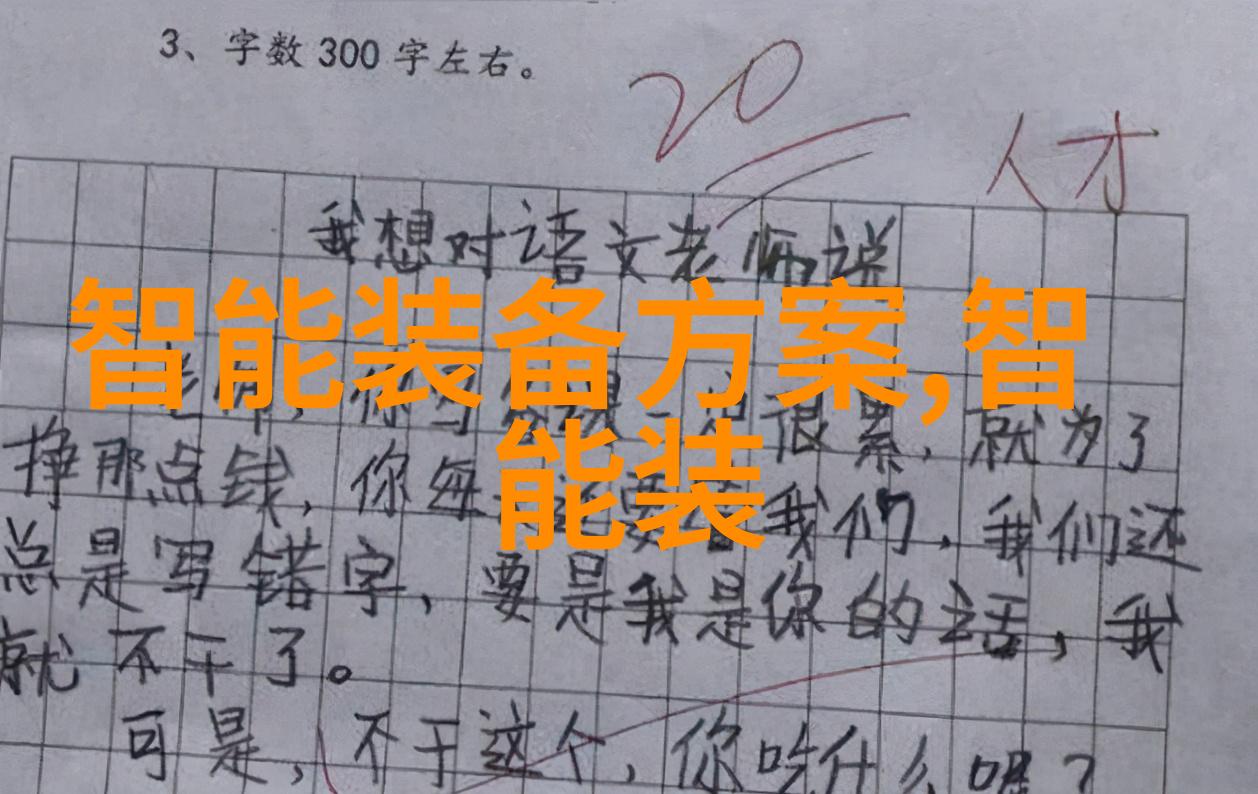 3、字数 300 字左右。
20
人才
我想对语文老师说
智能装备方案,智
能装
很累，就为了
挣那点钱，你每
我们，我们还
总是写错字，要是我是你的话，我
就不干了。
可是，不干这个，你吃什么呢？